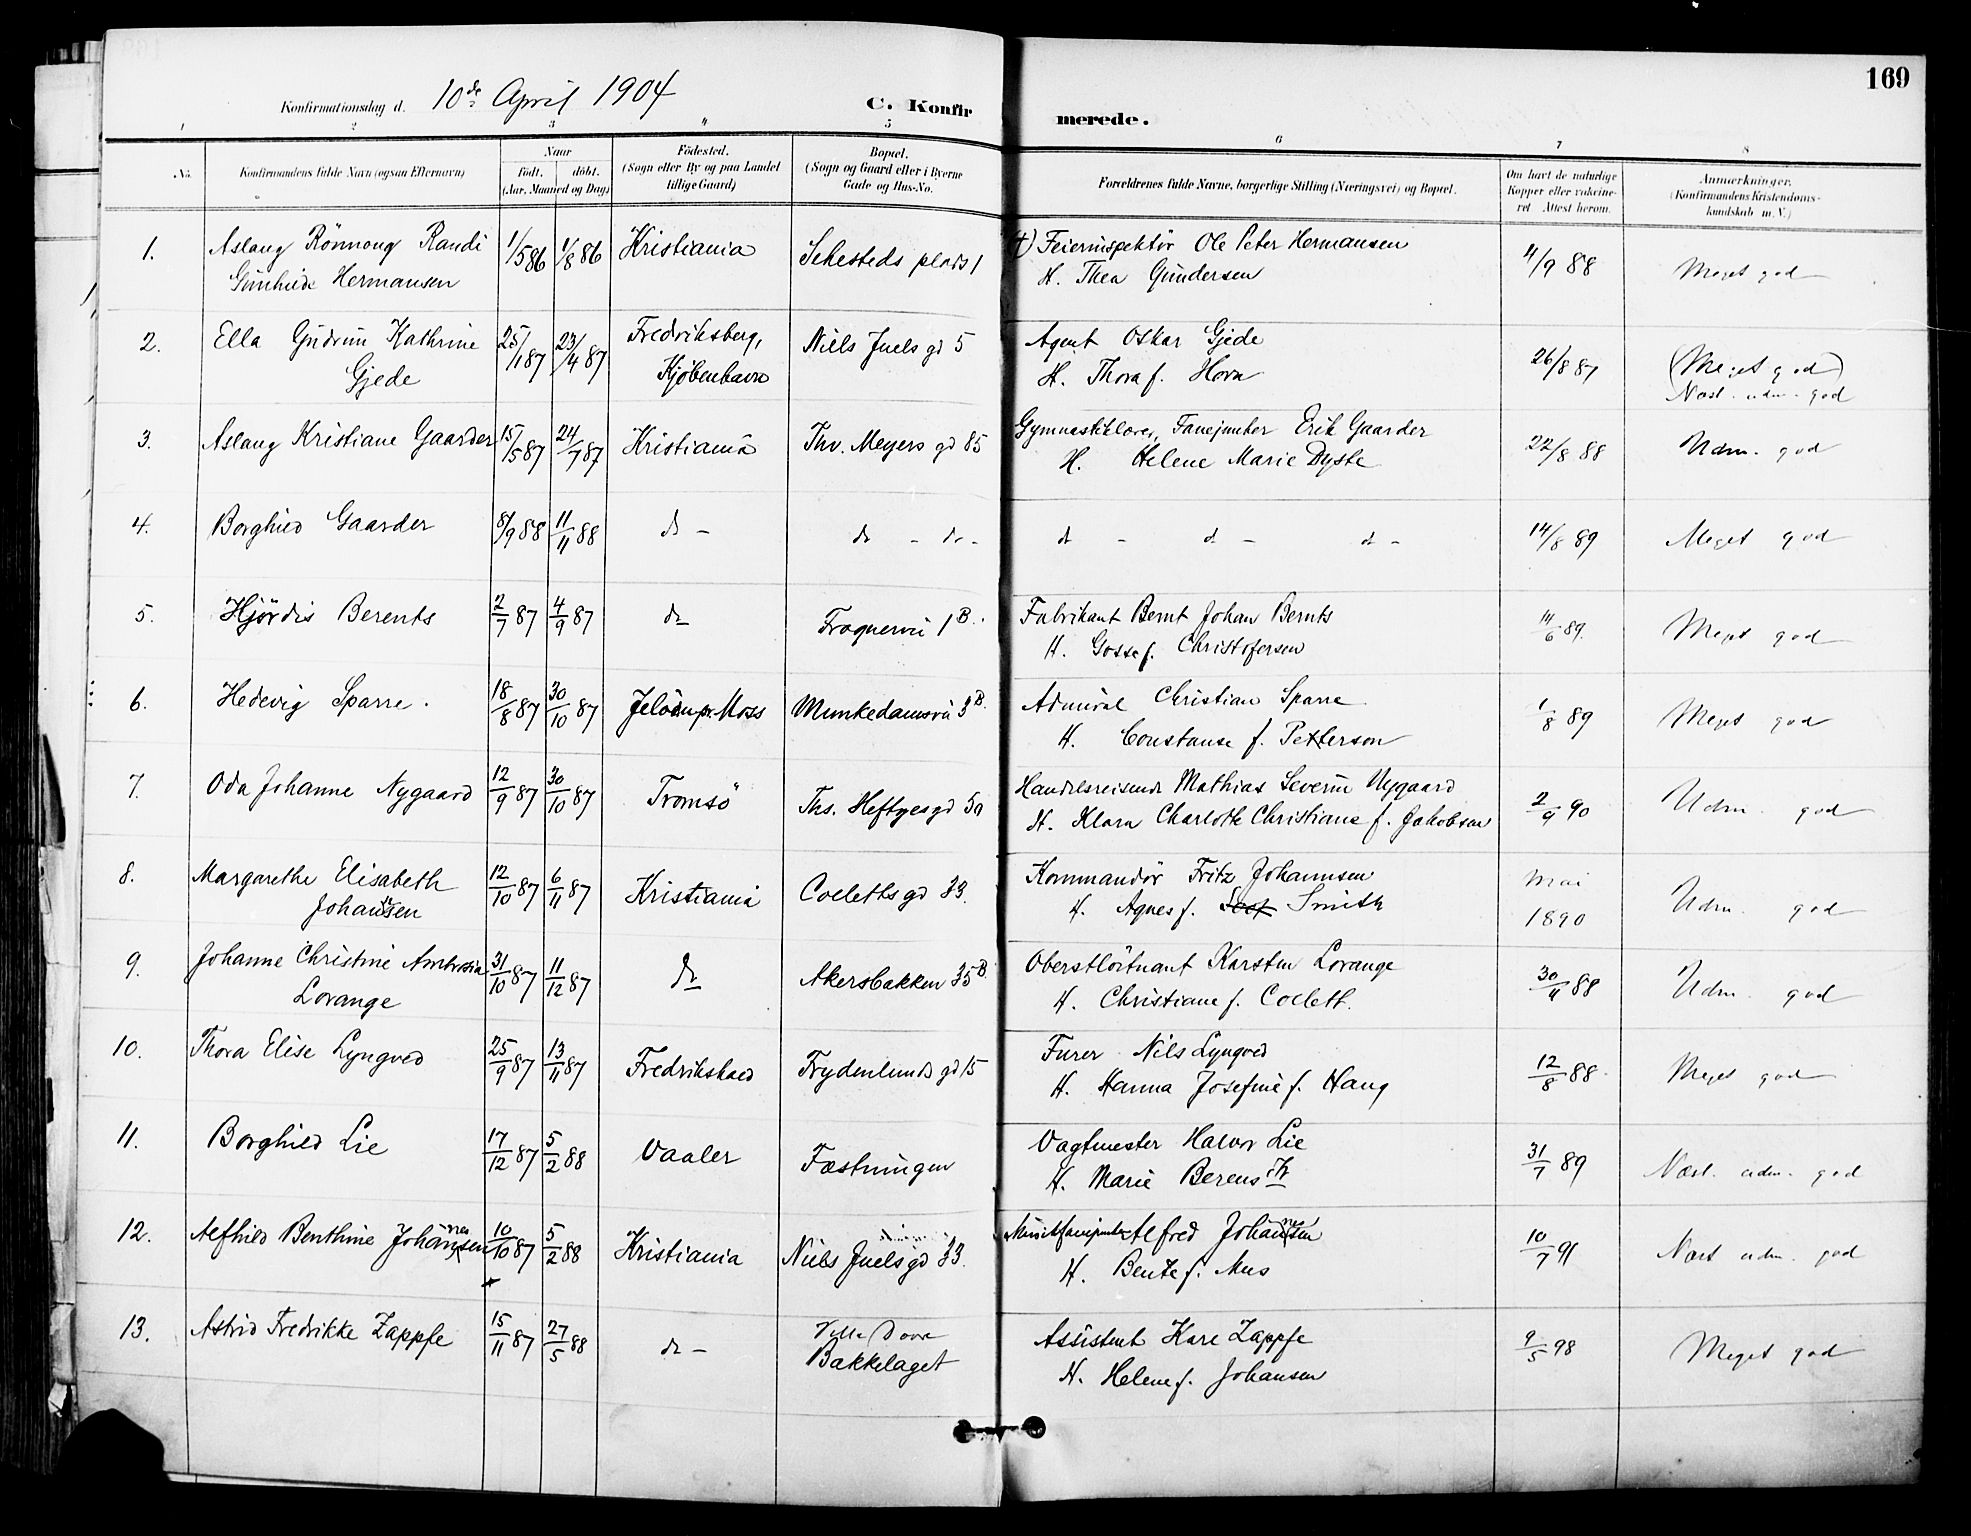 169
Konfirmationsdag d. 10de April 1904
C. Konfirmerede.
1 2 3 4 5 6 7 8
No.
Konfirmandens fulde Navn (ogsaa Efternavn)
Naar
født. døbt.
(Aar, Maaned og Dag)
Födested.
(Sogn eller By og paa Landet
tillige Gaard)
Bopæl.
(Sogn og Gaard eller i Byerne
Gade og Hus-No.
Forældrenes fulde Navne, borgerlige Stilling (Næringsvei) og Bopæl.
Om havt de naturlige
Kopper eller vakcine-
ret Attest herom.
Anmærkninger.
(Konfirmandens Kristendoms-
kundskab m. V.)
1. Aslaug Rönnoug Randi 1/5 86 1/8 86 Kristiania Sehesteds plads 1 Feierinspektör Ole Peter Hermansen 4/9 88 Meget god
Gunhild Hermansen H. Thea Gundersen
2. Ella Gudrun Kathrine 25/1 87 23/4 87 Fredriksberg, Niels Juels gd 5 Agent Oskar Gjede 26/8 87 (Meget god)
Gjede Kjöbenhavn H. Thora f. Horn Næst. udm. god
3. Aslaug Kristiane Gaarder 15/5 87 24/7 87 Kristiania Thv. Meyers gd 85 Gymnastiklærer, Fanejunker Erik Gaarder 22/8 88 Udm. god
H. Helene Marie Dyste
4. Borghild Gaarder 8/9 88 11/11 88 do - do - do - do - do - do - 14/8 89 Meget god
5. Hjördis Berents 2/7 87 4/9 87 do Frognervei 1B. Fabrikant Bernt Johan Bernts 14/6 89. Meget god
H. Gosse f. Christofersen
6. Hedevig Sparre. 18/8 87 30/10 87 Jelöen pr. Moss Munkedamsvei 3B. Admiral Christian Sparre 1/8 89 Meget god
H. Constanse f. Petterson
7. Oda Johanne Nygaard 12/9 87 30/10 87 Tromsö Ths. Heftyes gd 5a Handelsreisende Mathias Severin Nygaard 2/9 90 Udm. god
H. Klara Charlotte Christiane f. Jakobsen
8. Margarethe Elisabeth 12/10 87 6/11 87 Kristiania Colletts gd 33. Kommandör Fritz Johannsen Mai Udm. god
Johannsen H. Agnes f. Smith 1890
9. Johanne Christine Ambrosia 31/10 87 11/12 87 do Akersbakken 35B. Oberstlöitnant Karsten Lorange 30/11 88 Udm. god
Lorange H. Christiane f. Collett.
10. Thora Elise Lyngved 25/9 87 13/11 87 Fredrikshald Frydenlunds gd 15 Furer Nils Lyngved 12/8 88 Meget god
H. Hanna Josefine f. Haug
11. Borghild Lie 17/12 87 5/2 88 Vaaler Fæstningen Vagtmester Halvor Lie 31/7 89 Næst. udm. god
H. Marie Berensth
12. Alfhild Benthine Johannesen 10/10 87 5/2 88 Kristiania Niels Juels gd 33. Musikfanejunker Alfred Johannesen 10/7 91 Næst udm. god
H. Bente f. Aus
13. Astrid Fredrikke Zappfe 15/11 87 27/5 88 do - Villa Dovre Assistent Kare Zappfe 9/5 98 Meget god
Bakkelaget H. Helene f. Johansen